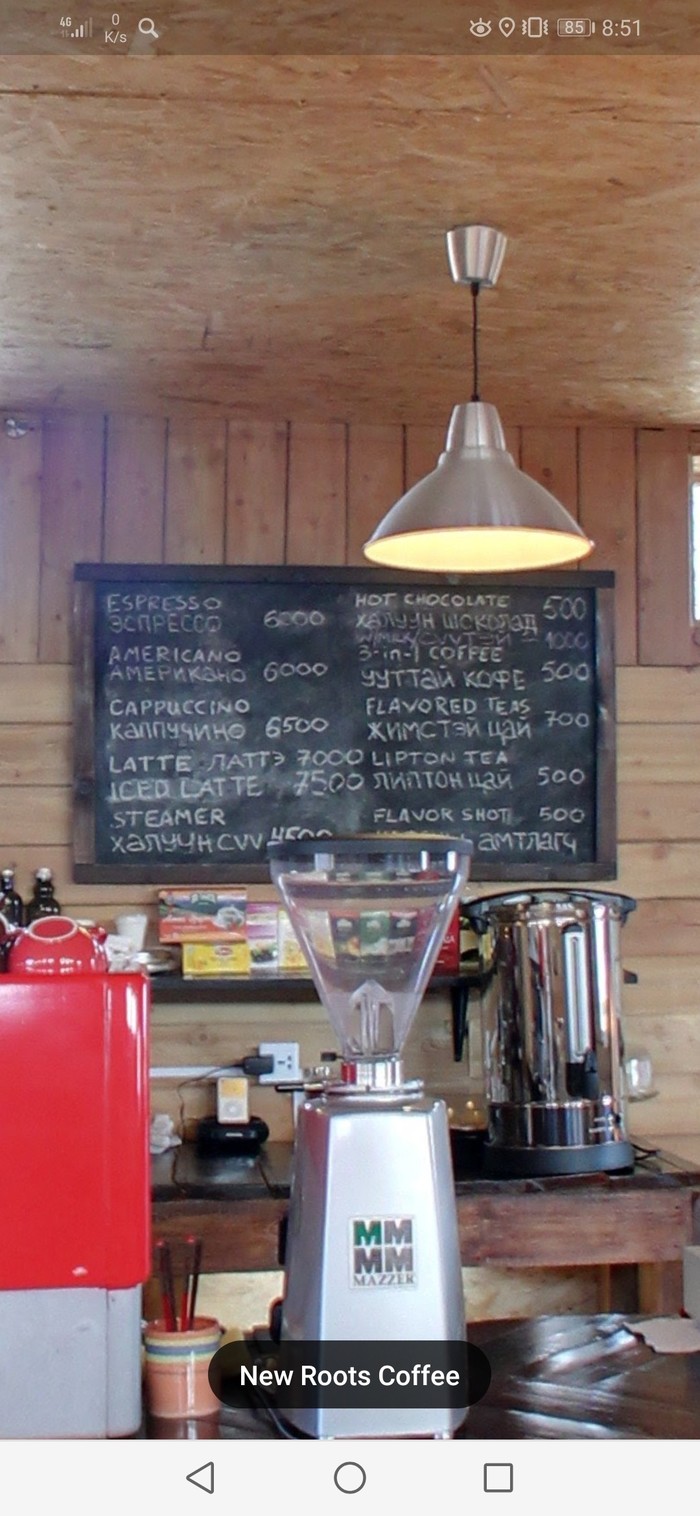 4G
0
K/s
85
8:51
ESPRESSO
ЭСПРЕССО 6000
AMERICANO
АМЕРИКАНО 6000
CAPPUCCINO
КАППУЧИНО 6500
LATTE ЛАТТЭ 7000
ICED LATTE 7500
STEAMER
ХАЛУУН СҮҮ 4500
HOT CHOCOLATE 500
ХАЛУУН ШОКОЛАД
1000
3-in-1 COFFEE
ҮҮТТАЙ КОФЕ 500
FLAVORED TEAS
ЖИМСТЭЙ ЦАЙ 700
LIPTON TEA
ЛИПТОН ЦАЙ 500
FLAVOR SHOT 500
АМТЛАГЧ
MM
MM
MAZZER
New Roots Coffee